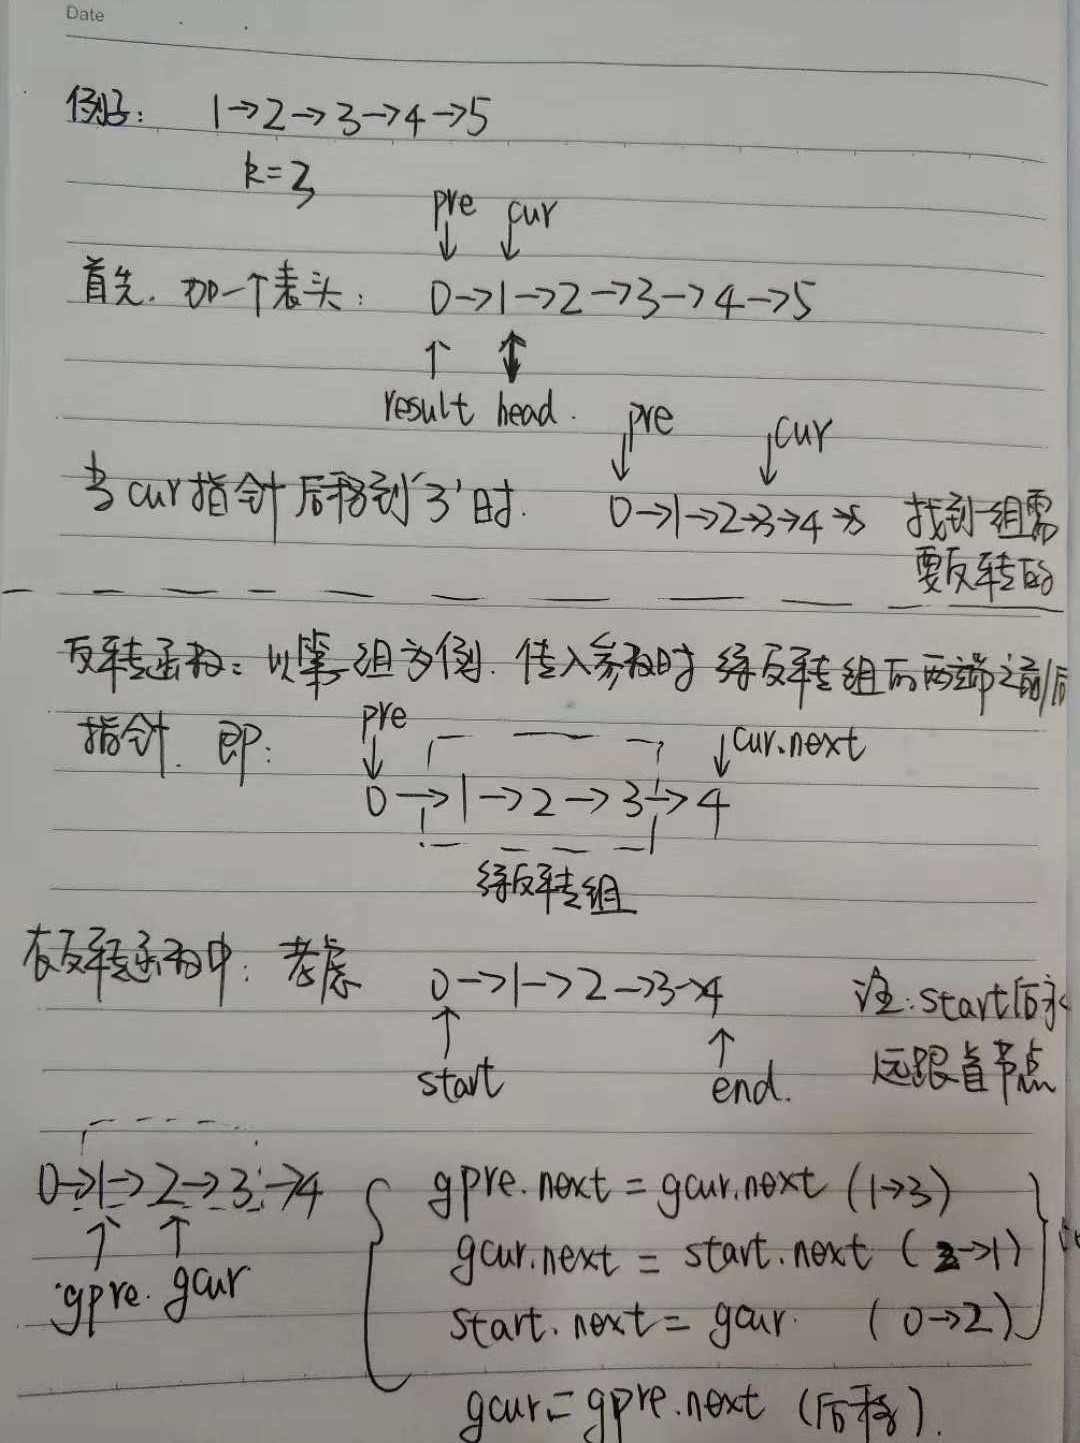 Date
例如: 1→2→3→4→5
k=3
pre cur
首先.加一个表头: 0→1→2→3→4→5
result head.
pre cur
当cur指针后移到'3'时. 0→1→2→3→4→5 找到一组需
要反转的
反转函数:以第一组为例.传入参数时 待反转组的两端之前/后
指针.即: pre cur.next
0→1→2→3→4
待反转组
在反转函数中:考虑 0→1→2→3→4 注:start后永
start end. 远跟首节点
0→1→2→3→4 gpre.next = gcur.next (1→3)
gpre. gcur gcur.next = start.next (2→1)
start.next = gcur. (0→2)
gcur = gpre.next (后移).